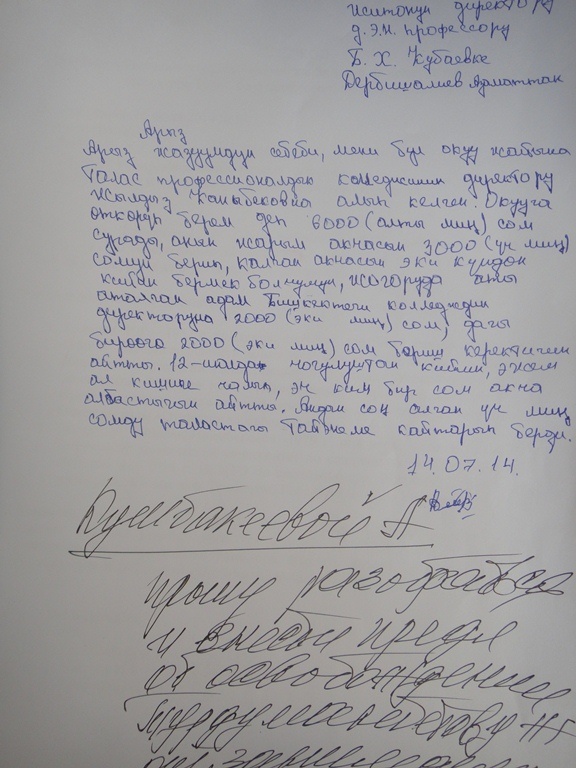 директору
д.э.н. профессору
Б. Х. Кубаевке
Дербишалиев Адматтан
Арыз
Арыз жазуумдун себеби, мени бул окуу жайына
Талас профессионалдык колледжинин директору
Жылдыз Каныбековна алып келген. Окууга
откоруп берем деп 6000 (алты миң) сом
сурады, анын жарым акчасын 3000 (үч миң)
сомун берип, калган акчасын эки күндөн
кийин бермек болчумун, жогоруда аты
аталган адам Бишкектеги колледждин
директоруна 2000 (эки миң) сом, дагы
бирөөгө 2000 (эки миң) сом бериш керектигин
айтты. 12-июлдагы чогулуштан кийин, экем
ал кишиге чалып, эч ким бир сом акча
албастыгын айтты. Андан соң алган үч миң
сомду таластагы тайэнеме кайтарып берди.
14.07.14.
Кумбакеевой А
прошу разобраться
и внести предл
об освобождении